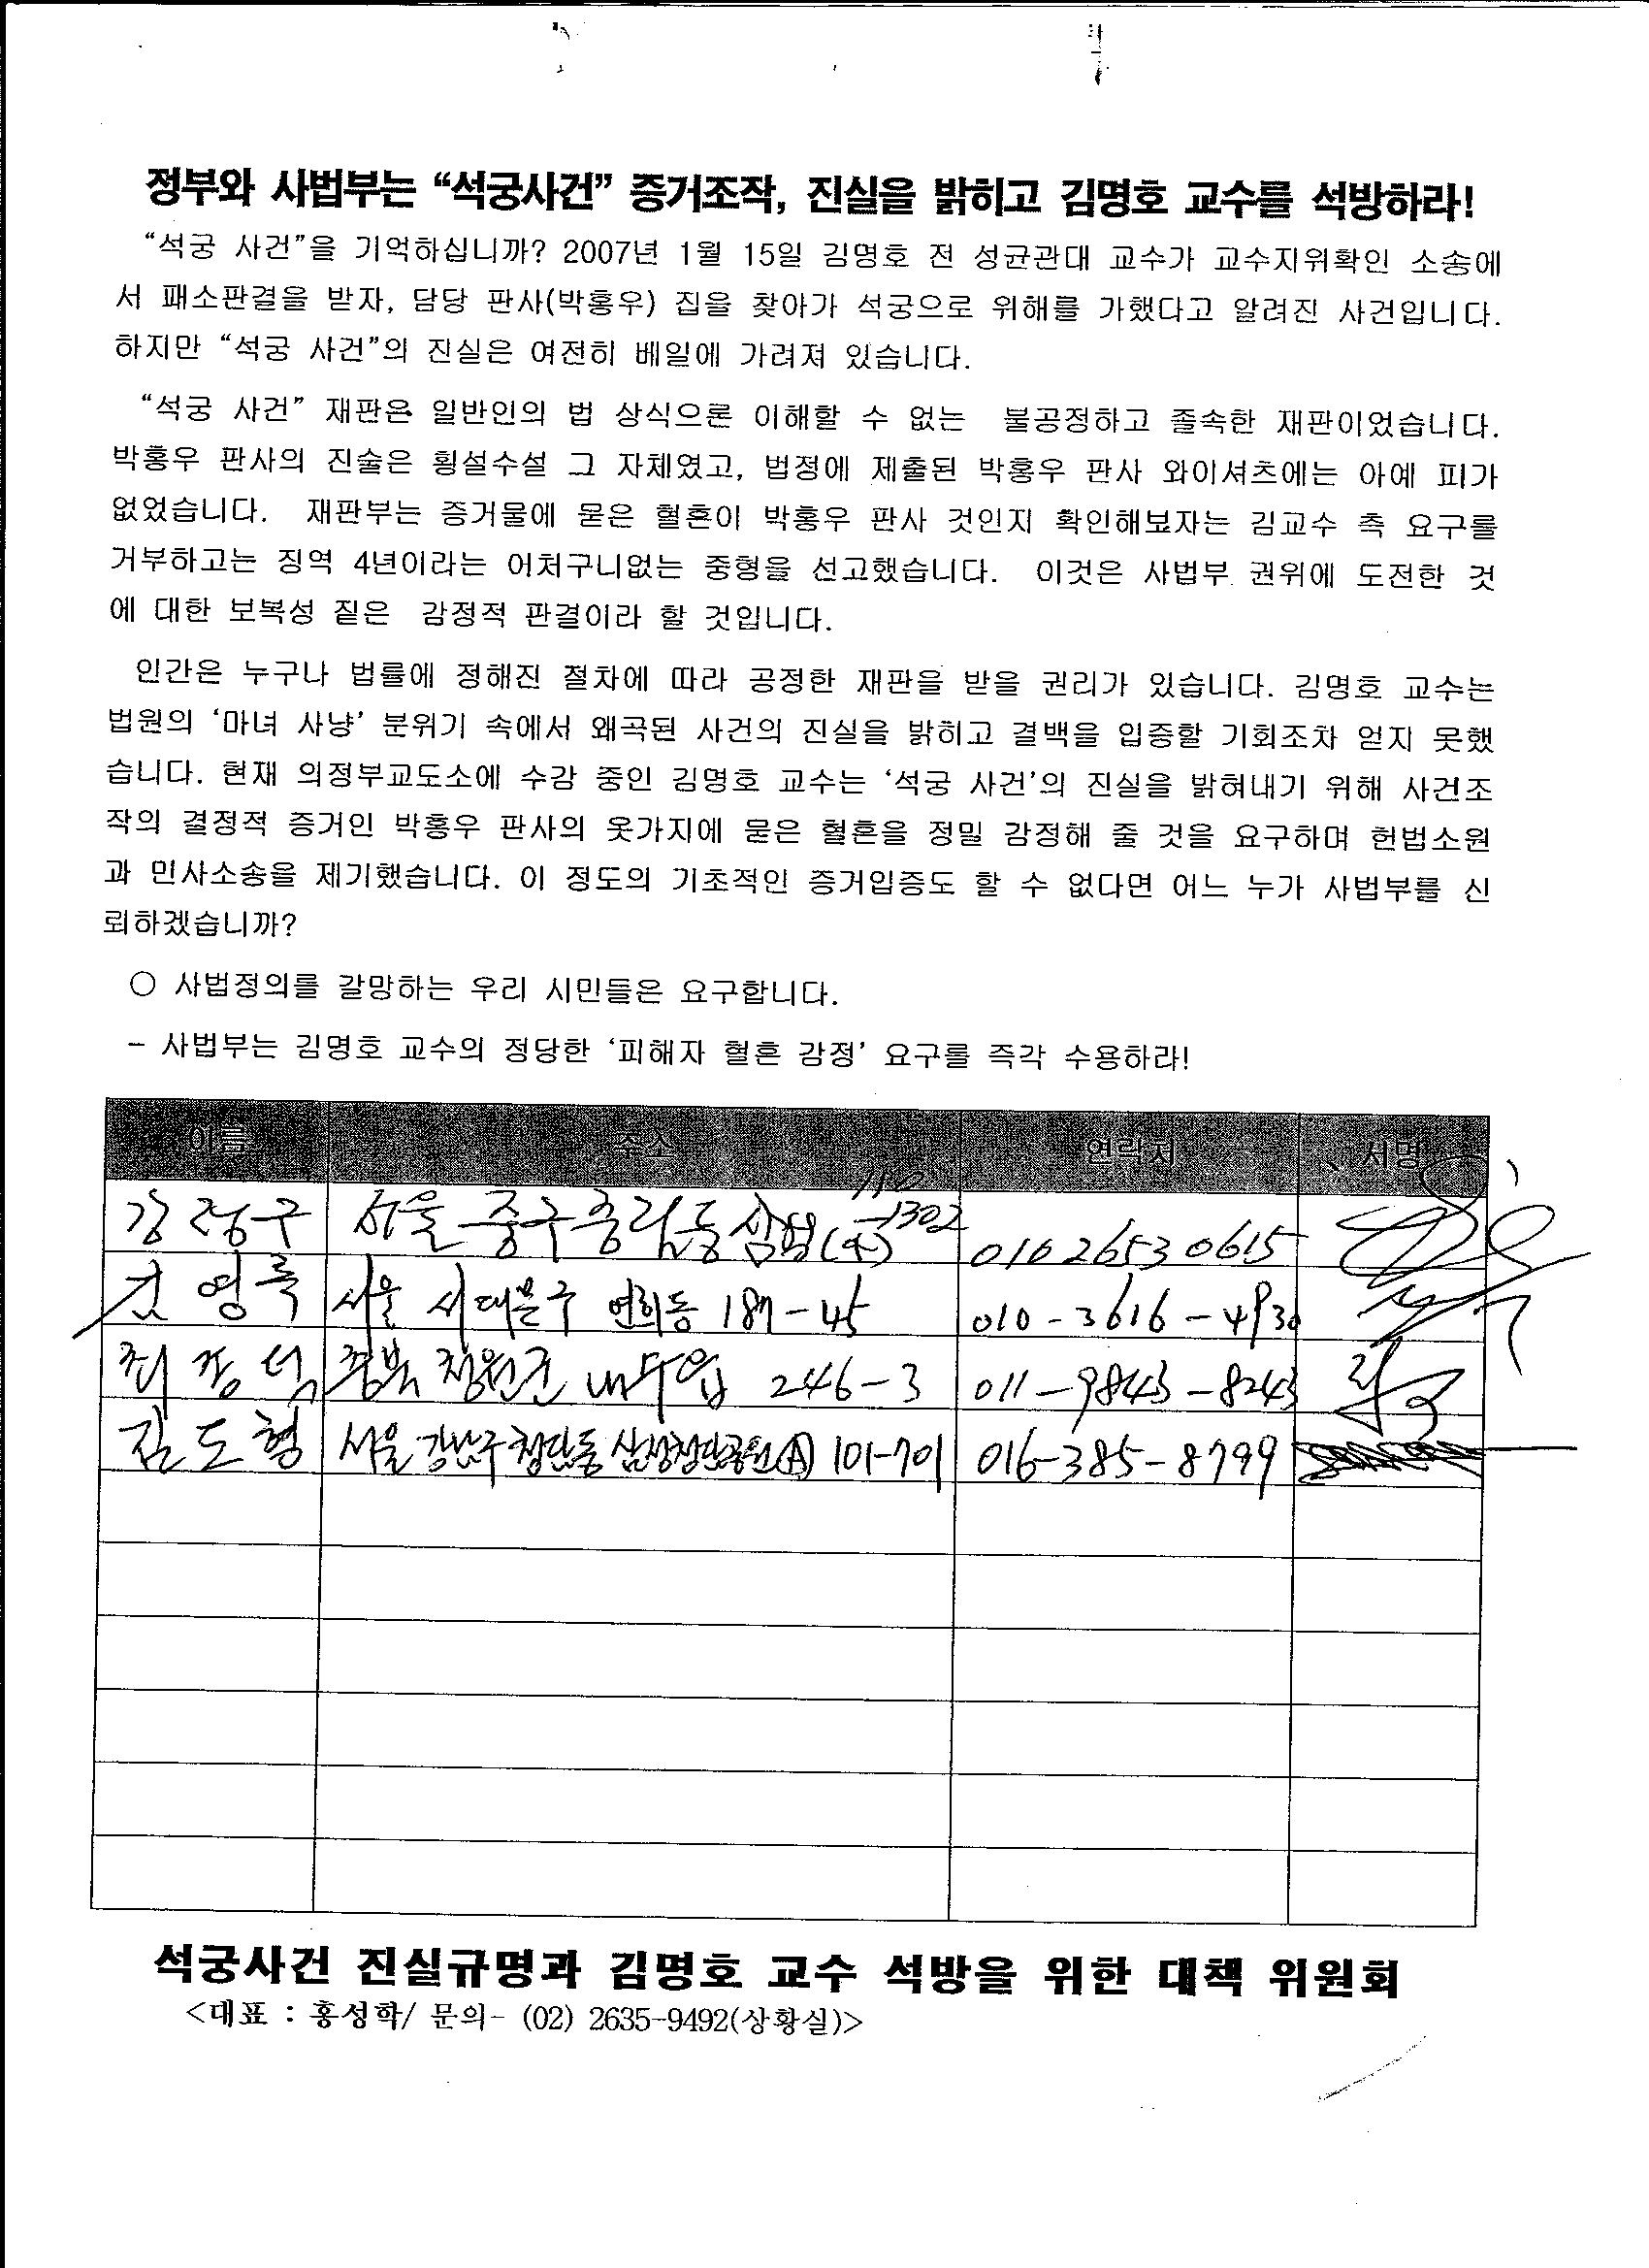 정부와 사법부는 “석궁사건” 증거조작, 진실을 밝히고 김명호 교수를 석방하라!
“석궁 사건”을 기억하십니까? 2007년 1월 15일 김명호 전 성균관대 교수가 교수지위확인 소송에
서 패소판결을 받자, 담당 판사(박홍우) 집을 찾아가 석궁으로 위해를 가했다고 알려진 사건입니다.
하지만 “석궁 사건”의 진실은 여전히 베일에 가려져 있습니다.
“석궁 사건” 재판은 일반인의 법 상식으론 이해할 수 없는 불공정하고 졸속한 재판이었습니다.
박홍우 판사의 진술은 횡설수설 그 자체였고, 법정에 제출된 박홍우 판사 와이셔츠에는 아예 피가
없었습니다. 재판부는 증거물에 묻은 혈흔이 박홍우 판사 것인지 확인해보자는 김교수 측 요구를
거부하고는 징역 4년이라는 어처구니없는 중형을 선고했습니다. 이것은 사법부 권위에 도전한 것
에 대한 보복성 짙은 감정적 판결이라 할 것입니다.
인간은 누구나 법률에 정해진 절차에 따라 공정한 재판을 받을 권리가 있습니다. 김명호 교수는
법원의 ‘마녀 사냥’ 분위기 속에서 왜곡된 사건의 진실을 밝히고 결백을 입증할 기회조차 얻지 못했
습니다. 현재 의정부교도소에 수감 중인 김명호 교수는 ‘석궁 사건’의 진실을 밝혀내기 위해 사건조
작의 결정적 증거인 박홍우 판사의 옷가지에 묻은 혈흔을 정밀 감정해 줄 것을 요구하며 헌법소원
과 민사소송을 제기했습니다. 이 정도의 기초적인 증거입증도 할 수 없다면 어느 누가 사법부를 신
뢰하겠습니까?
○ 사법정의를 갈망하는 우리 시민들은 요구합니다.
- 사법부는 김명호 교수의 정당한 ‘피해자 혈흔 감정’ 요구를 즉각 수용하라!
이름 주소 연락처 서명
강정구 서울 중구 중림동 삼성(A) 110-1302 016 2653 0615
영록 서울 서대문구 연희동 187-45 010-3616-4930
최 석 충북 청원군 내수읍 246-3 011-9843-8243
김도형 서울 강남구 청담동 삼성청담공원(A) 101-701 016-385-8799
석궁사건 진실규명과 김명호 교수 석방을 위한 대책 위원회
<대표 : 홍성학/ 문의- (02) 2635-9492(상황실)>